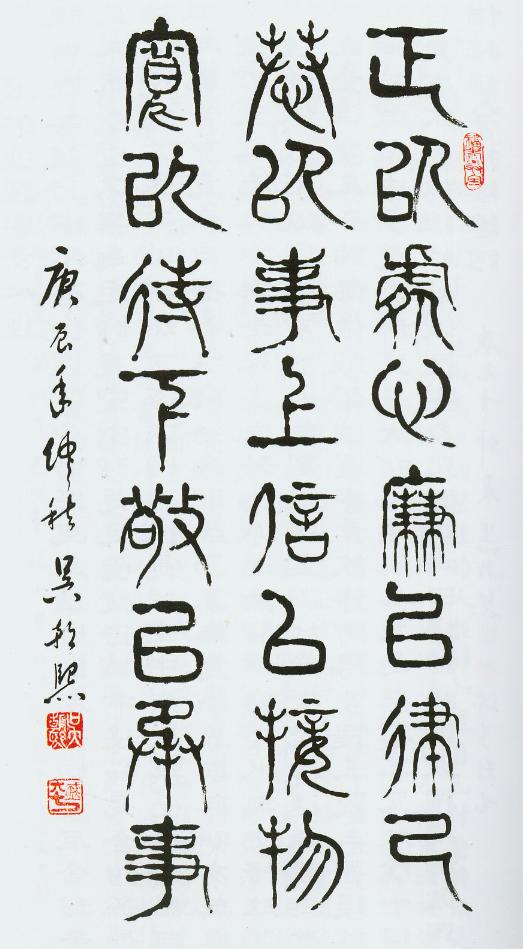 正以處心廉以律己
恭以事上信以接物
寬以待下敬以承事
庚辰年仲秋吴熙